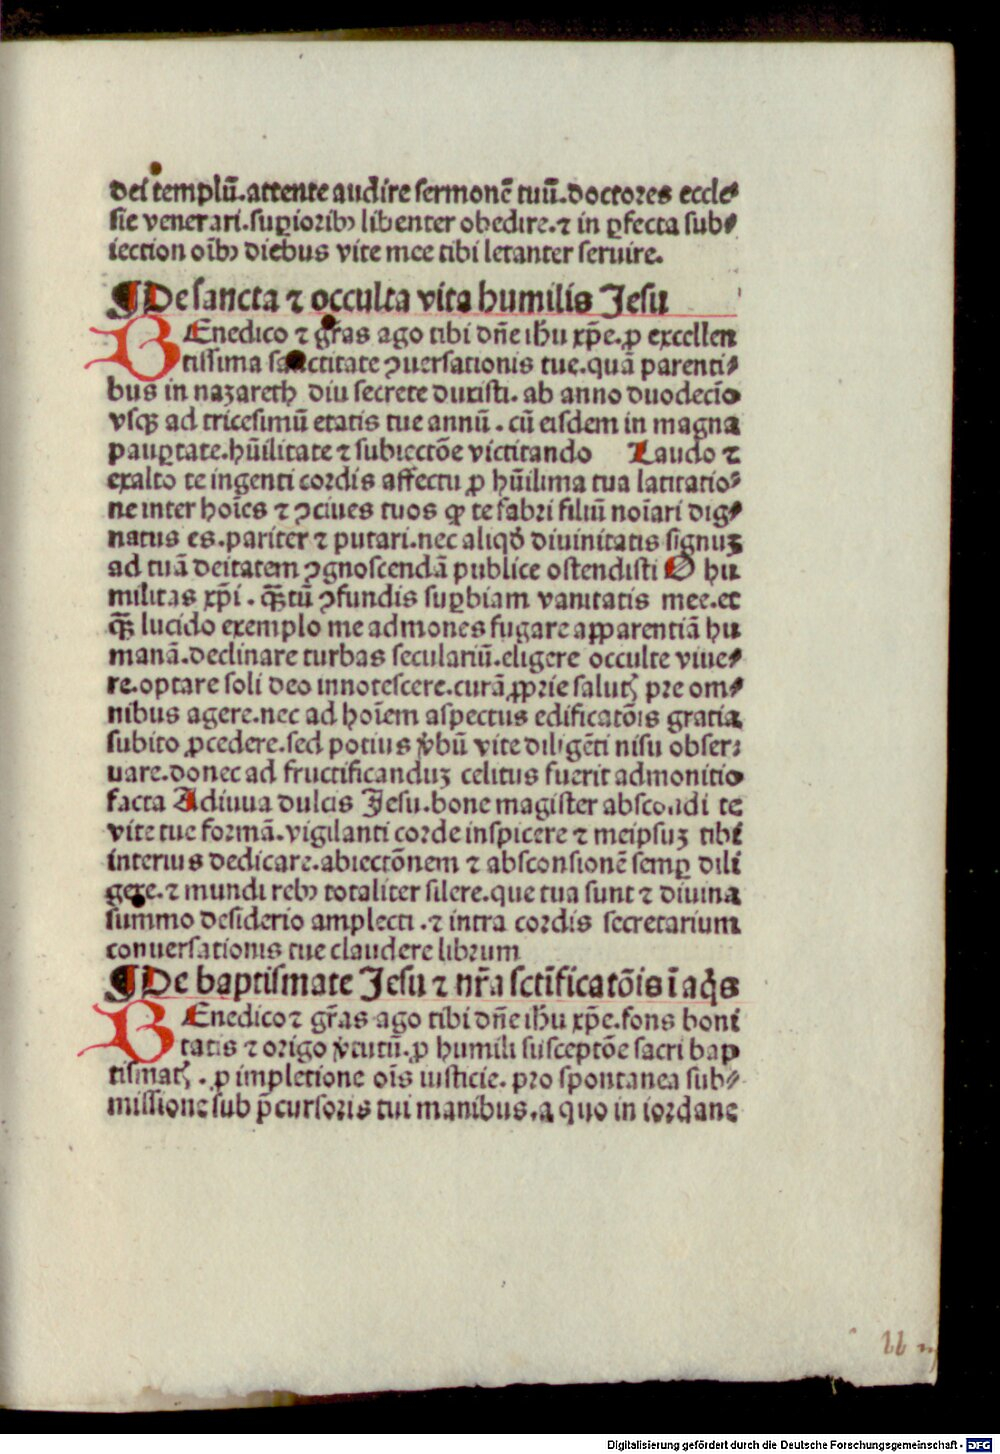 dei templū.attente audire sermonē tuū.doctores eccle⸗
sie venerari.suꝑiorib⁹ libenter obedire.⁊ in ꝑfecta sub⸗
iection oīb⁹ diebus vite mee tibi letanter seruire.
¶ De sancta ⁊ occulta vita humilis Jesu
BEnedico ⁊ gr̄as ago tibi dn̄e ih̄u xp̄e.ꝓ excellen
tissima sanctitate ꝯuersationis tue.quā parenti⸗
bus in nazareth diu secrete duxisti. ab anno duodecīo
vsqꝫ ad tricesimū etatis tue annū. cū eisdem in magna
pauꝑtate.hūilitate ⁊ subiectōe victitando Laudo ⁊
exalto te ingenti cordis affectu ꝓ hūilima tua latitatio⸗
ne inter hoīes ⁊ ꝯciues tuos ꝙ te fabri filiū noīari dig⸗
natus es.pariter ⁊ putari.nec aliqd̄ diuinitatis signuꝫ
ad tuā deitatem ꝯgnoscendā publice ostendisti O hu
militas xp̄i. qꝫ̄tū ꝯfundis suꝑbiam vanitatis mee.et
qꝫ̄ lucido exemplo me admones fugare apparentiā hu
manā.declinare turbas seculariū.eligere occulte viue⸗
re.optare soli deo innotescere.curā ꝓprie salutꝭ pre om⸗
nibus agere.nec ad hoīem aspectus edificatōis gratia
subito ꝓcedere.sed potius v̄bū vite diligēti nisu obser⸗
uare.donec ad fructificanduꝫ celitus fuerit admonitio
facta Adiuua dulcis Jesu.bone magister abscondi te
vite tue formā.vigilanti corde inspicere ⁊ meipsuꝫ tibi
interius dedicare.abiectōnem ⁊ absconsionē semꝑ dili
gere.⁊ mundi reb⁹ totaliter silere.que tua sunt ⁊ diuina
summo desiderio amplecti.⁊ intra cordis secretarium
conuersationis tue claudere librum
¶ De baptismate Jesu ⁊ nr̄a sct̄ificatōis ī aq̄s
BEnedico ⁊ gr̄as ago tibi dn̄e ih̄u xp̄e.fons boni
tatis ⁊ origo v̄tutū.ꝓ humili susceptōe sacri bap
tismatꝭ. ꝓ impletione oīs iusticie. pro spontanea sub⸗
missione sub p̄cursoris tui manibus.a quo in iordane
Digitalisierung gefördert durch die Deutsche Forschungsgemeinschaft - DFG